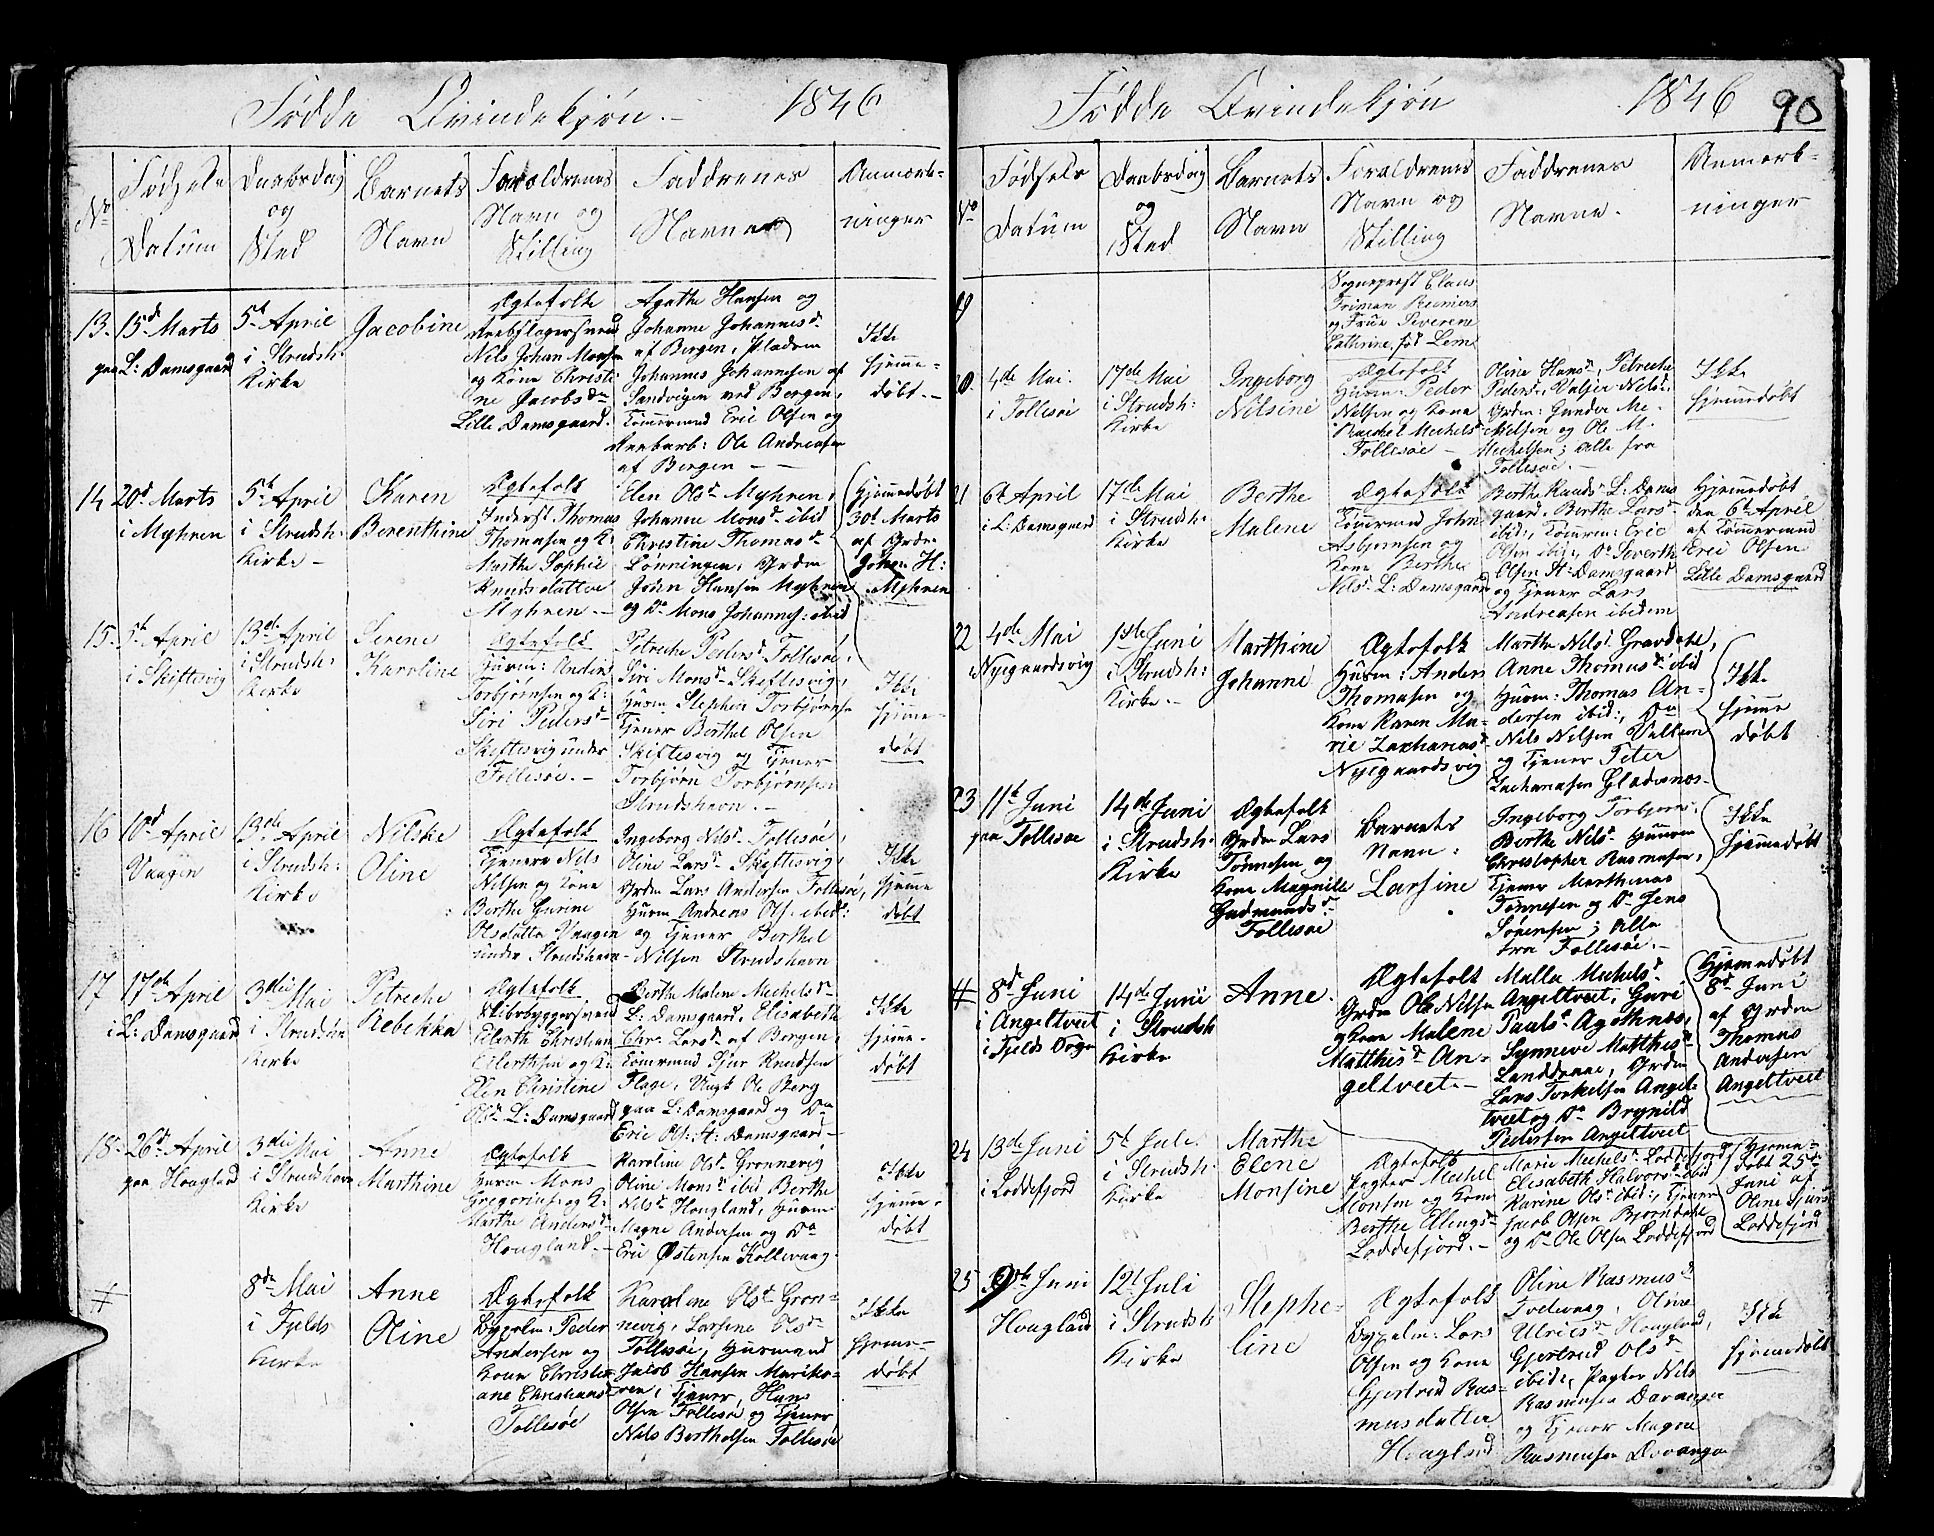 Fødde Qvindekjøn.- 1846
No
Fødsels
Datum
Daabsdag
og
Sted
Barnets
Navn
Foraldrenes
Navn og
Stilling
Faddrenes
Navne
Anmærk-
ninger
13.
15d Marts
paa L: Damsgaard
5t April
i Strudsh:
Kirke
Jacobine
Ægtefolk
Nils Johan Monsen
og Kone Christi-
ne Jacobsdr
Lille Damsgaard.
Agathe Hansen og
Johanne Johannesdr
af Bergen,
Johannes Johannesen af
Sandvigen ved Bergen,
Tømermd Eric Olsen og
Ole Andreasen
af Bergen - -
Ikke
hjemme-
døbt.-
14
20d Marts
i Myhren
5t April
i Strudsh:
Kirke -
Karen
Berenthine
Ægtefolk
Inderst Thomas
Thomasen og K:
Marthe Sophie
Knudsdatter
Myhren.-
Elen Olsdr Myhren,
Johanne Monsdr ibid
Christine Thomasdr
Lønningen, Grdm
John Hansen Myhren
og Do Mons Johannes: ibid
Hjemmedøbt
30t Marts
af Grdm
Johan H:
Myhren
15.
5t April
i Skiftesvig
13de April
i Strudsh:
Kirke
Serene
Karoline
Ægtefolk
Huusm: Anders
Torbjørnsen og K:
Siri Pedersdr
Skiftesvig under
Follesøe.-
Petreche Pedersdr Follesøe,
Siri Monsdr Skiftesvig,
Huusm Stephen Torbjørnse
Tjener Berthel Olsen
Skiftesvig og Tjener
Torbjørn Torbjørnsen
Strudshavn.-
Ikke
hjemme-
døbt
16
10d April
Vaagen
13de April
i Strudsh:
Kirke
Nilske
Oline
Ægtefolk
Tjener Nils
Nilsen og Kone
Berthe Gurine
Olsdatter Vaagen
under Strudshavn
Ingeborg Nilsdr Follesøe,
Oline Larsdr Skiftesvig,
Grdm Lars Andersen Follesøe,
Husm Andreas Ols: ibid:
og Tjener Berthel
Nilsen Strudshavn
Ikke
hjemme
døbt
17
17de April
i L. Damsgaard
3die Mai
i Strudshn
Kirke
Petreche
Rebekka
Ægtefolk
Skibsbyggersvend
Eilerth Christian
Eilerthsen og K:
Elen Christine
Olsdr L: Damsgaard
Berthe Malene Mechelsdr
L: Damsgaard, Elisabeth
Chr: Larsdr af Bergen,
Tømermand Sjur Knudsen
Flage, Ungk Ole Berg
paa L: Damsgaard og Do
Eric Ols: St: Damsgaard-
Ikke
hjemme-
døbt
18.
26d April
paa Hougland
3die Mai
i Strudshavn
Kirke
Anne
Marthine
Ægtefolk
Huusm Mons
Gregorius: og K:
Marthe Andersdr
Hougland.-
Karoline Olsdr Grønnevig
Oline Monsdr ibid Berthe
Nilsdr Hougland, Huusm
Magne Andersen og Do
Eric Østensen Kollevaag.
Ikke
hjemme-
døbt
#
8de Mai
i Fjelds
Kirke
Anne
Oline
Ægtefolk
Bygselm: Peder
Andersen og
Koun Christi-
ane Christiansdr
Follesøe
Karoline Olsdr Grøn-
nevig, Larsine Olsdr
Follesøe, Huusmand
Jacob Hansen Mariko-
ven, Tjener Hans
Olsen Follesøe og Tjener
Nils Berthelsen Follesøe
Ikke
hjemme-
døbt
Fødde Qvindekjøn 1846 90
No
Fødsels
Datum
Daabsdag
og
Sted
Barnets
Navn
Foraldrenes
Navn og
Stilling
Faddrenes
Navne.
Anmærk-
ninger
19
Sogneprest Claus
Friman Reimers
og Frue Severene
Cathrine, fød Lem
20.
4de Mai.
i Follesøe
17de Mai
i Strudsh:
Kirke
Ingeborg
Nilsine
Ægtefolk
Huusm: Peder
Nilsen og Kone
Rachel Mechelsdr
Follesøe -
Oline Hansdr, Petreche
Pedersdr, Nilsdr,
Grdm: Gunder Me-
chelsen og Ole M.
Mechelsen; alle fra
Follesøe.-
Ikke
hjemmedøbt
21
6te April
i L. Damsgaard
17de Mai
i Strudsh:
Kirke
Berthe
Malene
Ægtefolk
Tømermd John
Asbjørnsen og
Kone Berthe
Nilsdr L: Damsgaard
Berthe Knudsdr L: Dams
gaard, Berthe Larsdr
ibid:, Tømrem: Eric
Olsen ibid:, Do Siverth
Olsen St: Damsgaard
og Tjener Lars
Andreasen ibidem
Hjemmedøbt
den 6te April
af Tømmermand
Eric Olsen
Lille Damsgaard
22
4de Mai
Nygaardsvig
1ste Juni
i Strudsh:
Kirke.-
Marthine
Johanne
Ægtefolk
Husm: Anders
Thomasen og
Kone Karen Ma-
rie Zachariasdr
Nygaardsvig
Marthe Nilsdr Gravdale,
Anne Thomasdr ibid
Husm: Thomas An-
dersen ibid:, Do
Nils Nilsen
og Tjener Peter
Zachariasen
Ikke
hjemme
døbt
23
11te Juni
paa Follesøe
14de Juni
i Strudsh:
Kirke
Ægtefolk
Grdm Lars
Tønnesen og
Kone Magnille
Gudmundsdr
Follesøe
Barnets
Navn:
Larsine
Ingeborg Torbjørns:
Berthe Nilsdr Huusm
Christopher Rasmusen,
Tjener Marthinus
Tønnesen og Do Jens
Sørensen; alle
fra Follesøe.-
Ikke
hjemmedøbt
#
8d Juni
i Angeltveit
i Fjelds Sogn
14de Juni
i Strudsh
Kirke
Anne.
Ægtefolk
Grdm Ole Nilsen
og Kone Malene
Matthisdr An-
geltveet.-
Malla Mechelsdr
Angeltveit, Guri
Paulsdr Agothnes,
Synneve Matthisdr
Landdraae, Grdm
Lars Torkelsen Angel-
tveet og Do Brynild
Pedersen Angeltveit
Hjemmedøbt
8d Juni
af Grdm
Thomas
Andersen
Angeltveit
24
13de Juni
i Loddefjord
5te Juli
i Strudsh:
Kirke
Marthe
Elene
Monsine
Ægtefolk
Pagter Mechel
Monsen og Kone
Berthe Ellingsdr
Loddefjord.-
Marie Mechelsdr Loddefjord
Elisabeth Halvorsdr ibid
Karine Olsdr ibid:, Tjener
Jacob Olsen Bjørndale
og Do Ole Olsen Loddefjord
Hjemme-
døbt 25de
Juni af
Oline Sjursdr
Loddefjord
25
9de Juni
Hougland
12t Juli
i Strudsh
Kirke
Stephe-
line
Ægtefolk
Bygselm: Lars
Olsen og Kone
Gjertrud Ras-
musdatter
Hougland
Oline Rasmusdr
Tvedevaag, Oline
Ulricsdr Hougland,
Gjertrud Olsdr
ibid:, Pagter Nils
Rasmusen Davanger
og Tjener Magne
Rasmusen Davanger
Ikke
hjemmedøbt